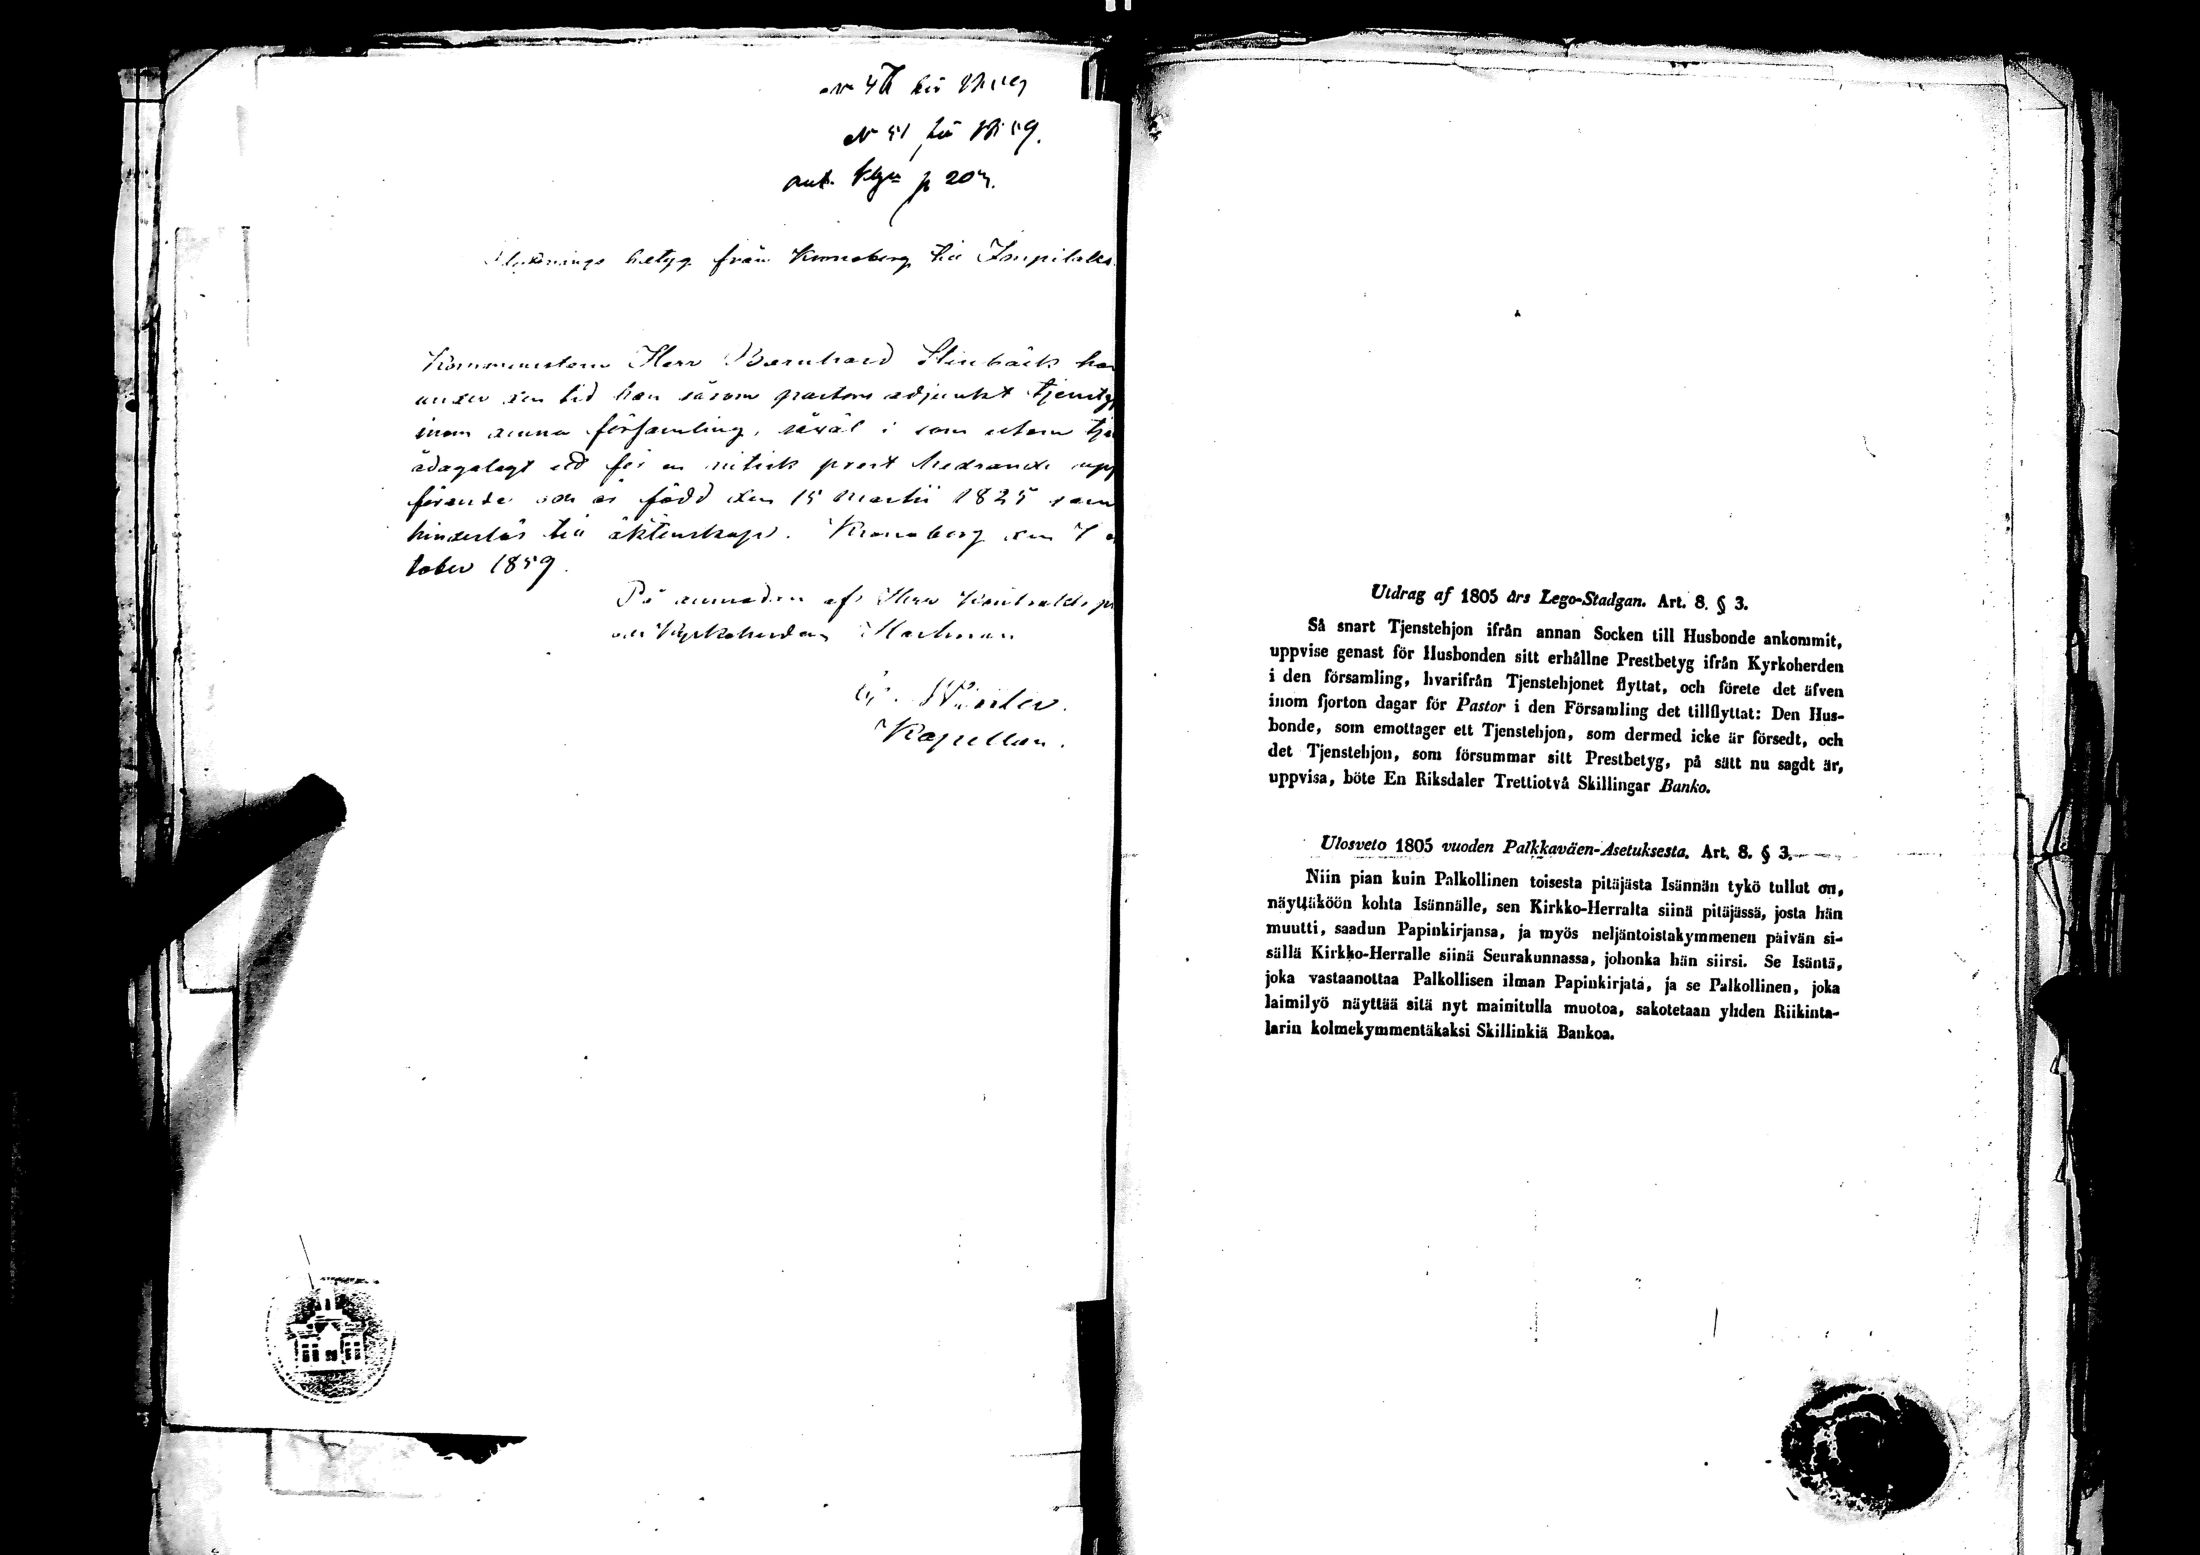 ant. p 20
betyg från Kronoborg till Impilaks
Kommunistern Herr Bernhard Stenbäck har
under den tid han såsom pastors adjunkt tjenstg
inom denna församling, såväl i som utom tje
ådagalagt ett för en nitisk prest hedrande upp
förande och är född den 15 Martii 1825 samt
hinderlös till äktenskap. Kronoborg den 7
tober 1859.
På anmodan af Herr
och Kyrkoherden
Kapellan.
Utdrag af 1805 års Lego-Stadgan. Art. 8. § 3.
Så snart Tjenstehjon ifrån annan Socken till Husbonde ankommit,
uppvise genast för Husbonden sitt erhållne Prestbetyg ifrån Kyrkoherden
i den församling, hvarifrån Tjenstehjonet flyttat, och förete det äfven
inom fjorton dagar för Pastor i den Församling det tillflyttat: Den Hus-
bonde, som emottager ett Tjenstehjon, som dermed icke är försedt, och
det Tjenstehjon, som försummar sitt Prestbetyg, på sätt nu sagdt är,
uppvisa, böte En Riksdaler Trettiotvå Skillingar Banko.
Ulosveto 1805 vuoden Palkkaväen-Asetuksesta. Art. 8. § 3.
Niin pian kuin Palkollinen toisesta pitäjästa Isännän tykö tullut on,
näyttäköön kohta Isännälle, sen Kirkko-Herralta siinä pitäjässä, josta hän
muutti, saadun Papinkirjansa, ja myös neljäntoistakymmenen päivän si-
sällä Kirkko-Herralle siinä Seurakunnassa, johonka hän siirsi. Se Isäntä,
joka vastaanottaa Palkollisen ilman Papinkirjatá, ja se Palkollinen, joka
laimilyö näyttää sitä nyt mainitulla muotoa, sakotetaan yhden Riikinta-
larin kolmekymmentäkaksi Skillinkiä Bankoa.